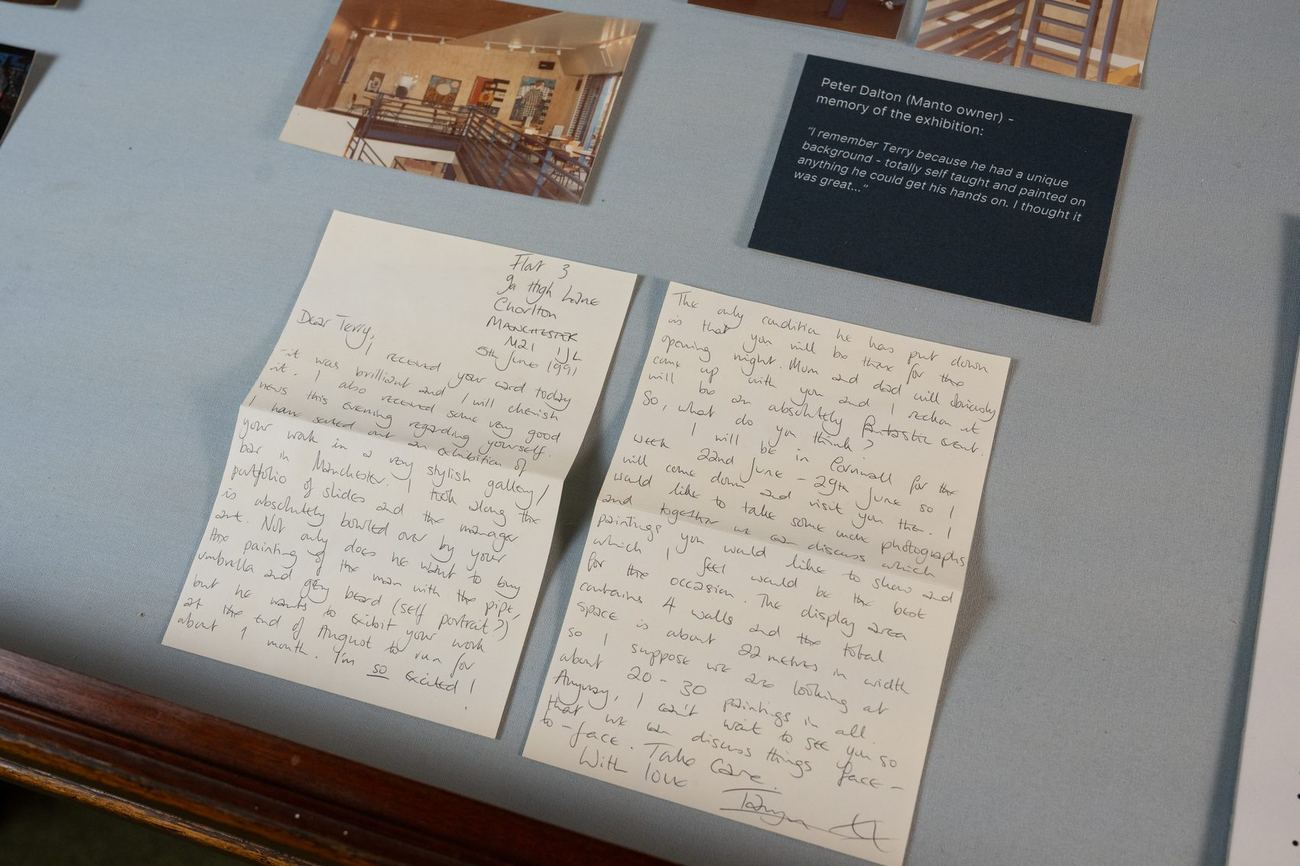 Peter Dalton (Manto owner) -
memory of the exhibition:
"I remember Terry because he had a unique
background - totally self taught and painted on
anything he could get his hands on. I thought it
was great..."
Flat 3
9a High Lane
Chorlton
MANCHESTER
M21 1JL
5th June 1991
Dear Terry,
I received your card today
it was brilliant and I will cherish
it. I also received some very good
news this evening regarding yourself.
I have sorted out an exhibition of
your work in a very stylish gallery/
bar in Manchester. I took along the
portfolio of slides and the manager
is absolutely bowled over by your
art. Not only does he want to buy
the painting of the man with the pipe,
umbrella and grey beard (self portrait?)
but he wants to exibit your work
at the end of August to run for
about 1 month. I'm so excited!
The only condition he has put down
is that you will be there for the
opening night. Mum and dad will obviously
come up with you and I reckon it
will be an absolutely fantastic event.
So, what do you think?
I will be in Cornwall for the
week 22nd June - 29th June so I
will come down and visit you then. I
would like to take some more photographs
and together we can discuss which
paintings you would like to show and
which I feel would be the best
for the occasion. The display area
contains 4 walls and the total
space is about 22 metres in width
so I suppose we are looking at
about 20 - 30 paintings in all.
Anyway, I can't wait to see you so
that we can discuss things face-
to-face. Take care.
With love